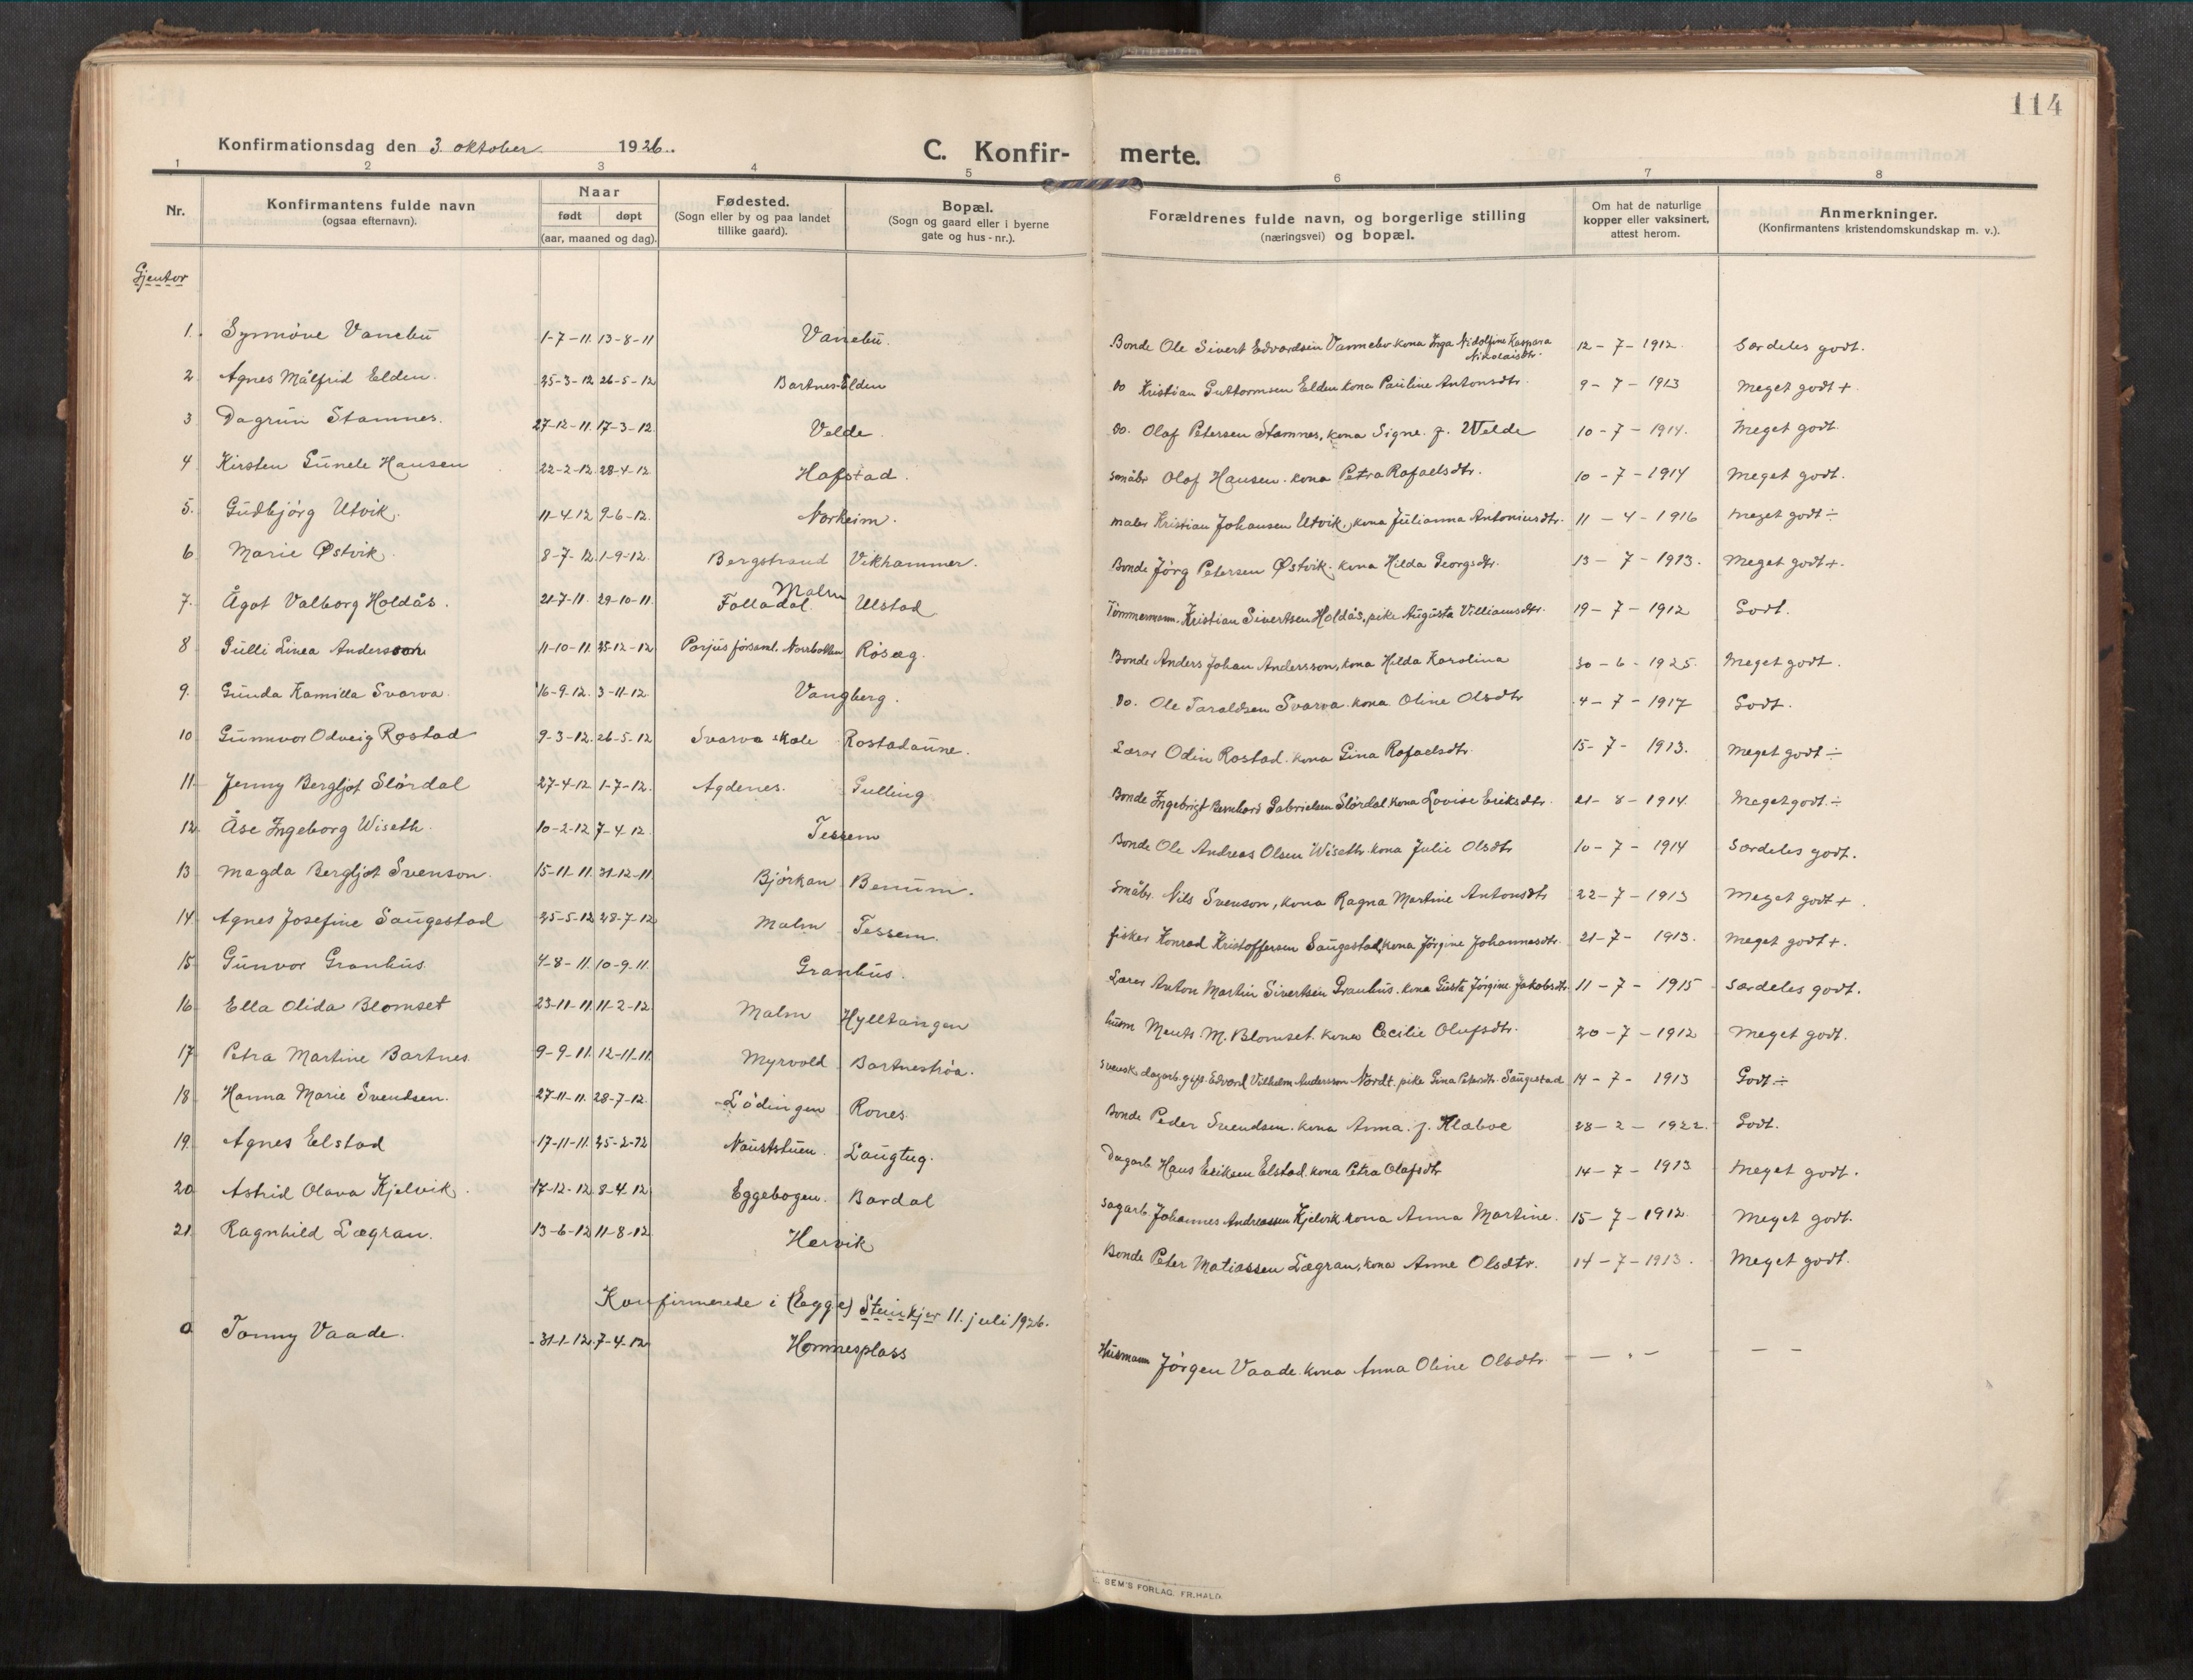 114
Konfirmationsdag den 3. oktober 1926.
C. Konfirmerte.
1 2 3 4 5 6 7 8
Nr.
Konfirmantens fulde navn
(ogsaa efternavn).
Naar
født døpt
(aar, maaned og dag).
Fødested.
(Sogn eller by og paa landet
tillike gaard).
Bopæl.
(Sogn og gaard eller i byerne
gate og hus-nr.).
Forældrenes fulde navn, og borgerlige stilling
(næringsvei) og bopæl.
Om hat de naturlige
kopper eller vaksinert,
attest herom.
Anmerkninger.
(Konfirmantens kristendomskundskap m. v.).
Gjentor
1. Synnöve Vanebu 1-7-11. 13-8-11 Vanebu. Bonde Ole Sivert Edvardsen Vannebo kona Inga Nidolfine Kaspara Nikolaisdtr. 12-7-1912. Særdeles godt.
2 Agnes Målfrid Elden. 25-3-12 26-5-12 Bartnes-Elden Do Kristian Guttormsen Elden kona Pauline Antonsdtr. 9-7-1913 Meget godt +
3 Dagrun Stamnes. 27-12-11. 17-3-12. Velde. Do. Olaf Petersen Stamnes, kona Signe. f. Welde 10-7-1914. Meget godt.
4 Kirsten Gunele Hansen 22-2-12. 28-4-12 Hafstad. småbr Olaf Hansen. kona Petra Rafaelsdtr. 10-7-1914 Meget godt.
5. Gudbjörg Utvik. 11-4.12 9-6-12. Norheim. maler Kristian Johansen Utvik, kona Julianna Antoniusdtr. 11-4-1916 Meget godt ÷
6 Marie Østvik. 8-7-12. 1-9-12. Bergstrand Vikhammer. Bonde Jörg Petersen Østvik. kona Hilda Georgsdtr. 13-7-1913. Meget godt +.
7. Ågot Valborg Holdås. 21-7-11. 29-10-11. Malm Folladal. Ulstad Tömmermann. Kristian Sivertsen Holdås, pike Augusta Villiamsdtr. 19-7-1912 Godt.
8 Gulli Linea Andersson 11-10-11. 25-12-12 Porjus församl. Norrbotten Rösæg. Bonde Anders Johan Andersson, kona Hilda Karolina 30-6-1925. Meget godt.
9. Gunda Kamilla Svarva. 16-9.12. 3-11-12. Vangberg. Do. Ole Taraldsen Svarva. kona Oline Olsdtr 4-7-1917 Godt.
10 Gunnvor Odveig Rostad 9-3-12. 26-5-12 Svarva skole Rostadaune. Lærer Odin Rostad. kona Gina Rafaelsdtr. 15-7-1913. Meget godt ÷
11 Jenny Bergljot Slördal 27-4-12 1-7-12. Agdenes. Gulling. Bonde Ingebrigt Bernhard Gabrielsen Slördal kona Lovise Eriksdtr. 21-8-1914. Meget godt. ÷
12. Åse Ingeborg Wiseth. 10-2-12 7-4.12. Tessem Bonde Ole Andreas Olsen Wiseth. kona Julie Olsdtr 10-7-1914 Særdeles godt.
13 Magda Bergljot Svenson. 15-11-11. 31-12-11 Björkan Benum. Småbr. Nils Svenson, kona Ragna Martine Antonsdtr 22-7-1913 Meget godt +.
14. Agnes Josefine Saugestad 25-5-12 28-7-12 Malm Tessem. fisker Konrad Kristoffersen Saugestad, kona Jörgine Johannesdtr. 21-7-1913. Meget godt +.
15 Gunvor Granhus 4-8-11. 10-9-11. Granhus. Lærer Anton Martin Sivertsen Granhus. kona Gusta Jörgine Jakobsdtr. 11-7-1915 Særdeles godt.
16 Ella Olida Blomset 23-11-11. 11-2-12 Malm Hylltangen husm Ments M. Blomset. kona Cecilie Olufsdtr. 20-7-1912 Meget godt.
17 Petra Martine Bartnes. 9-9-11. 12-11-11. Myrvold Bartneströa. svensk dagarb. gift. Edvard Vilhelm Andersson Nordt. pike Gina Petersdtr. Saugestad 14-7-1913 Godt ÷
18 Hanna Marie Svendsen. 27-11-11. 28-7-12. Lödingen Rones. Bonde Peder Svendsen. kona Anna. f. Klæboe 28-2-1922. Godt.
19. Agnes Elstad 17-11-11. 25-2-12 Nauststuen. Laugtug. Dagarb. Hans Eriksen Elstad. kona Petra Olafsdtr 14-7-1913 Meget godt.
20 Astrid Olava Kjelvik. 17-12-12. 8-4.12 Eggebogen. Bardal sagarb. Johannes Andreassen Kjelvik kona Anna Martine. 15-7-1912. Meget godt.
21 Ragnhild Lægran. 13-6-12 11-8-12 Hervik Bonde Peter Matiassen Lægran, kona Anne Olsdtr. 14-7-1913. Meget godt.
Konfirmerede i (Egge) Steinkjer 11. juli 1926.
0 Tonny Vaade. 31-1-12. 7-4-12 Hommesplass Husmann Jörgen Vaade. kona Anna Oline Olsdtr. — „ — — —
SEM'S FORLAG. FR.HALD.